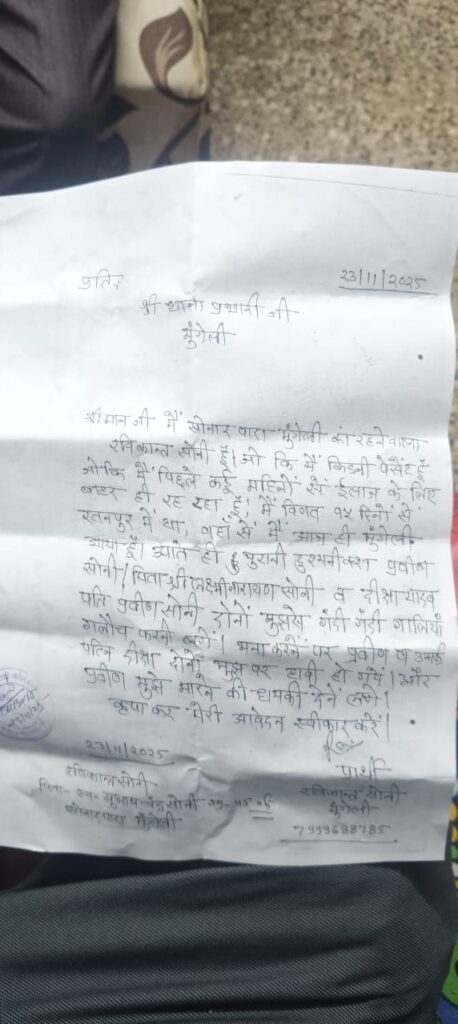 प्रति:
23/11/2025
श्री थाना प्रभारी जी
मुंगेली
श्रीमान जी मैं सोनार पारा मुंगेली का रहने वाला
रविकान्त सोनी हूँ। जो कि मैं किडनी पेसेंट हूँ
जोकि मैं पिछले कई महिनों से ईलाज के लिए
बाहर ही रह रहा हूँ, मैं विगत १५ दिनों से
रतनपुर में था, वहाँ से मैं आज ही मुंगेली
आया हूँ। आते ही पुरानी दुश्मनीवश प्रवीण
सोनी/पिता श्री लक्ष्मीनारायण सोनी व दीक्षा यादव
पति प्रवीण सोनी दोनों मुझसे गंदी गंदी गालियाँ
गलौच करनी लगे। मना करने पर प्रवीण व उसकी
पत्नि दीक्षा दोनों मुझ पर हावी हो गये। और
प्रवीण मुझे मारने की धमकी देने लगे।
कृपा कर मेरी आवेदन स्वीकार करें।
23/11/2025
प्रार्थी
रविकान्त सोनी
रविकान्त सोनी
पिता- स्व० सुभाष चंद्र सोनी
मुंगेली
सोनारपारा मुंगेली
7999688785